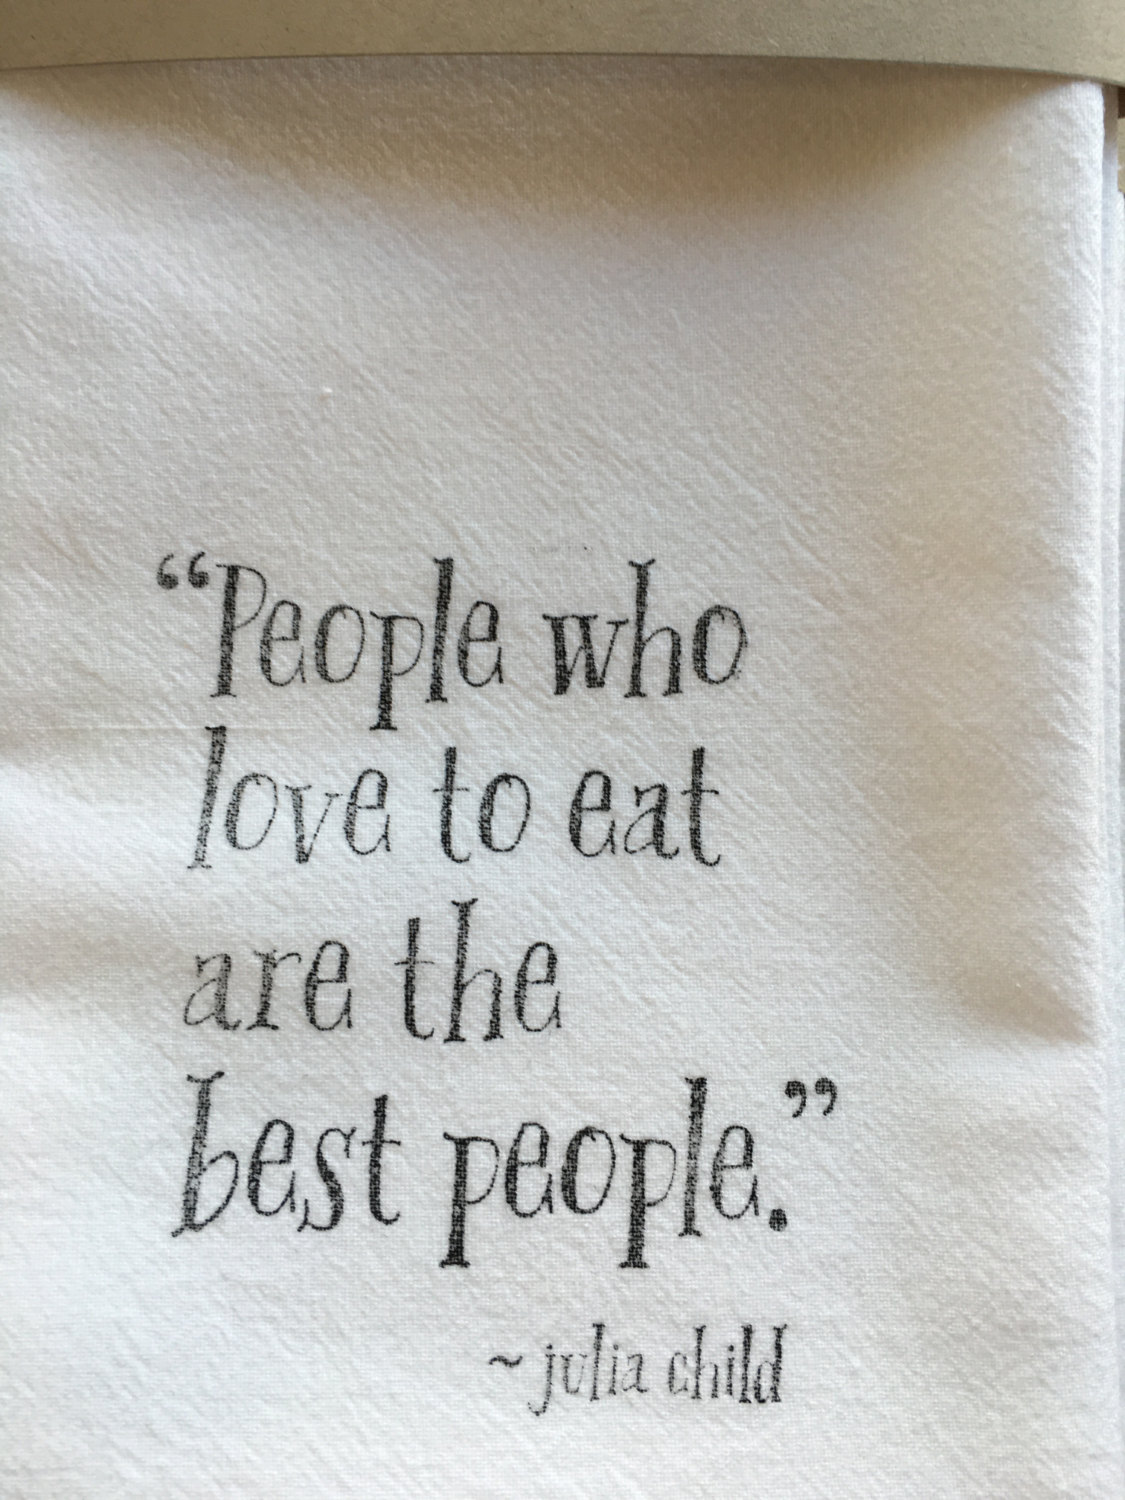 “People who
love to eat
are the
best people.”
~ julia child